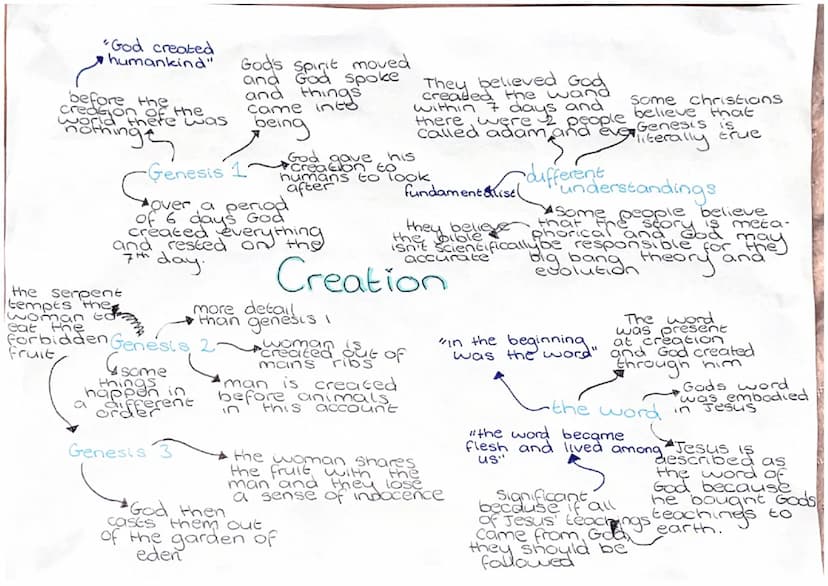 "God created
humankind"
before the
creation of the
world there was
nothing
God's spirit moved
and God spoke
and things
came into
being
Genesis 1
God gave his
creation to
humans to look
after
over a period
of 6 days God
created everything
and rested on the
7th day.
They believed God
created the world
within 7 days and
there were 2 people
called adam and eve
Some christians
believe that
Genesis is
literally true
different
understandings
fundamentalist
they believe
the bible
isn't scientifically
accurate
Some people believe
that the story is meta-
phorical and God may
be responsible for the
big bang theory and
evolution
Creation
the serpent
tempts the
woman to
eat the
forbidden
fruit
more detail
than genesis 1
Genesis 2
woman is
created out of
mans ribs
some
things
happen in
a different
order
man is created
before animals
in this account
Genesis 3
the woman shares
the fruit with the
man and they lose
a sense of indocence
God then
casts them out
of the garden of
eden
"in the beginning
was the word"
The word
was present
at creation
and God created
through him
the word
Gods word
was embodied
in Jesus
"the word became
flesh and lived among
us"
Jesus is
described as
the word of
God because
he bought Gods
teachings to
earth.
Significant
because if all
of Jesus' teachings
came from God,
they should be
followed